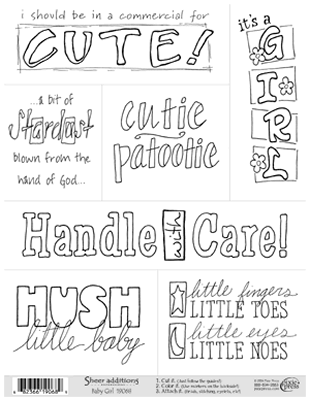 i should be in a commercial for
CUTE!
it's a
GIRL
...a bit of
Stardust
blown from the
hand of God...
cutie
patootie
Handle with Care!
HUSH
little baby
little fingers
LITTLE TOES
little eyes
LITTLE NOES
Sheer additions
Baby Girl 19068
1. Cut it.
2. Color it.
3. Attach it.
8 82366 19068